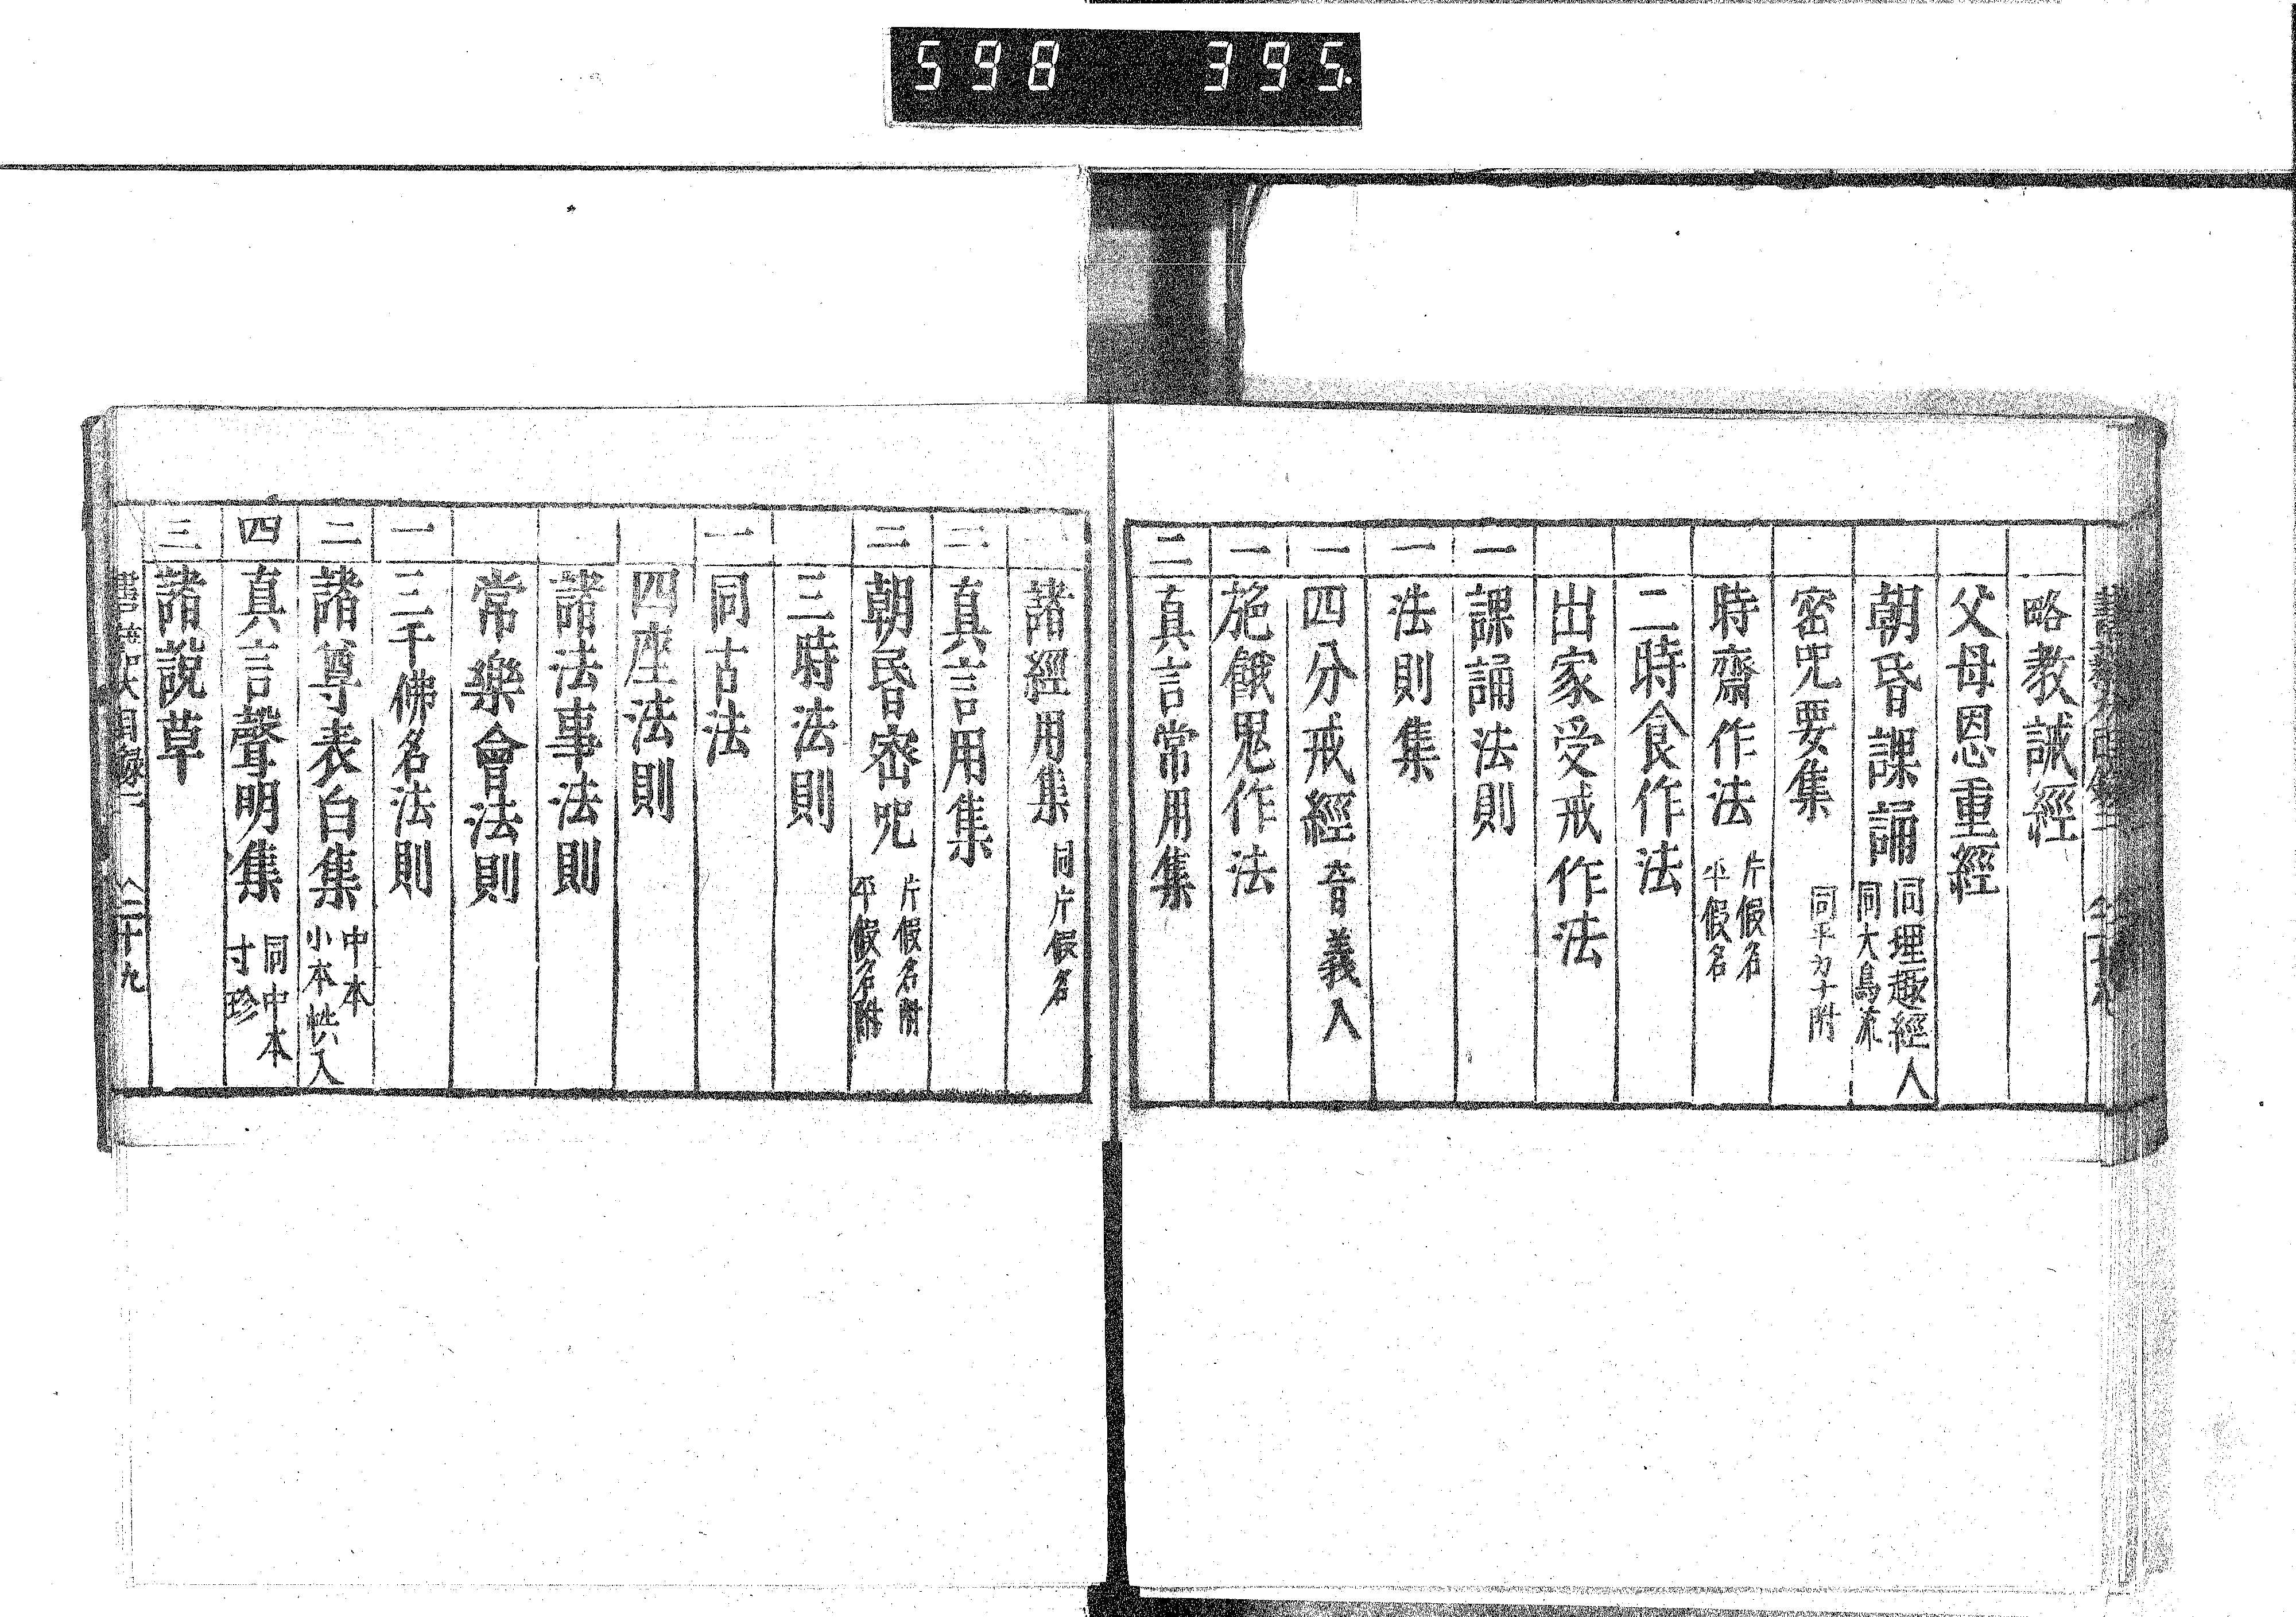 598 395.
略教誡經
父母恩重經
朝昏課誦 同理趣經入 同大鳥流
密咒要集 同平カナ附
時齋作法 片假名 平假名
二時食作法
出家受戒作法
一 課誦法則
一 法則集
一 四分戒經 音義入
一 施餓鬼作法
二 真言常用集
諸經用集 同片假名
三 真言用集
三 朝昏密咒 片假名附 平假名附
三時法則
一 同古法
四座法則
諸法事法則
常樂會法則
一 三千佛名法則
二 諸尊表白集 中本 小本帙入
四 真言聲明集 同中本 寸珍
三 諸説草
目録二 二十九